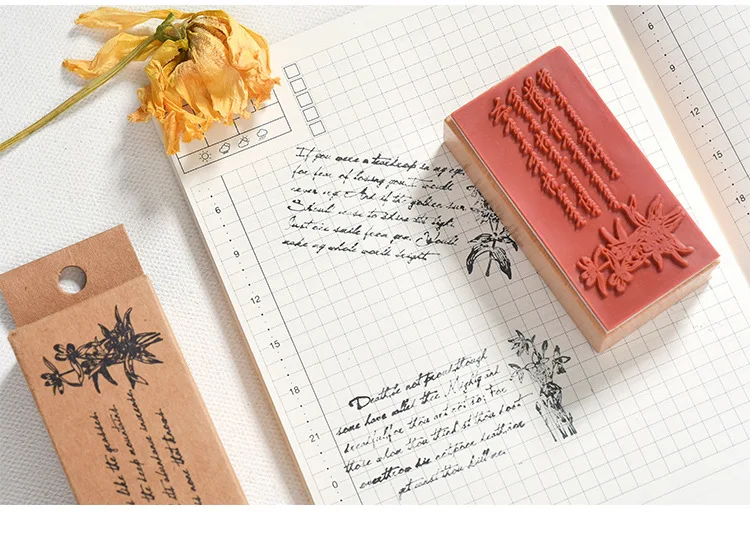 6
9
12
15
18
21
0
12
15
18
If you were a teardrop in my eye
for fear of losing you I would
never cry And if the golden sun
Should cease to shine its light
Just one smile from you Would
make my whole world bright
Death be not proud though
some have called thee Mighty and
dreadful for thou art not so, For
those whom thou think'st thou dost
overthrow die not poor death nor
yet canst thou kill me.
like the grasses
the deep mountains
the silent increase
none that knows.